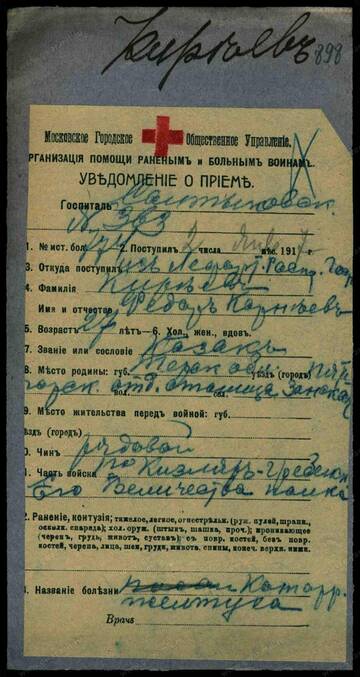 Киреевъ 898
Московское Городское Общественное Управленіе.
РГАНИЗАЦІЯ ПОМОЩИ РАНЕНЫМЪ И БОЛЬНЫМЪ ВОИНАМЪ.
УВѢДОМЛЕНІЕ О ПРІЕМѢ.
Госпиталь Салтыковск.
№ 363
1. № ист. бол. 2. Поступилъ 2 числа Янв. мѣс. 1917
3. Откуда поступилъ
4. Фамилія Кирѣевъ
Имя и отчество Федоръ Карнѣевъ
5. Возрастъ 27 лѣтъ—6. Хол., жен., вдовъ.
7. Званіе или сословіе Казакъ
8. Мѣсто родины: губ. Терск. обл. уѣздъ (городъ) Пяти
горск. отд. станица
вол. сел.
9. Мѣсто жительства передъ войной: губ.
ѣздъ (городъ)
0. Чинъ рядовой
1. Часть войска по Кизляръ-Гребенск
Его Величества полка
2. Раненіе, контузія; тяжелое, легкое, огнестрѣльн. (руж. пулей, шрапн.,
осколк. снаряда); хол. оруж. (штыкъ, шашка, проч.); проникающее
(черепъ, грудь, животъ, суставъ); съ повр. костей, безъ повр.
костей, черепа, лица, шеи, груди, живота, спины, конеч. верхн. нижн.
3. Названіе болѣзни Катарр.
желтуха
Врачъ